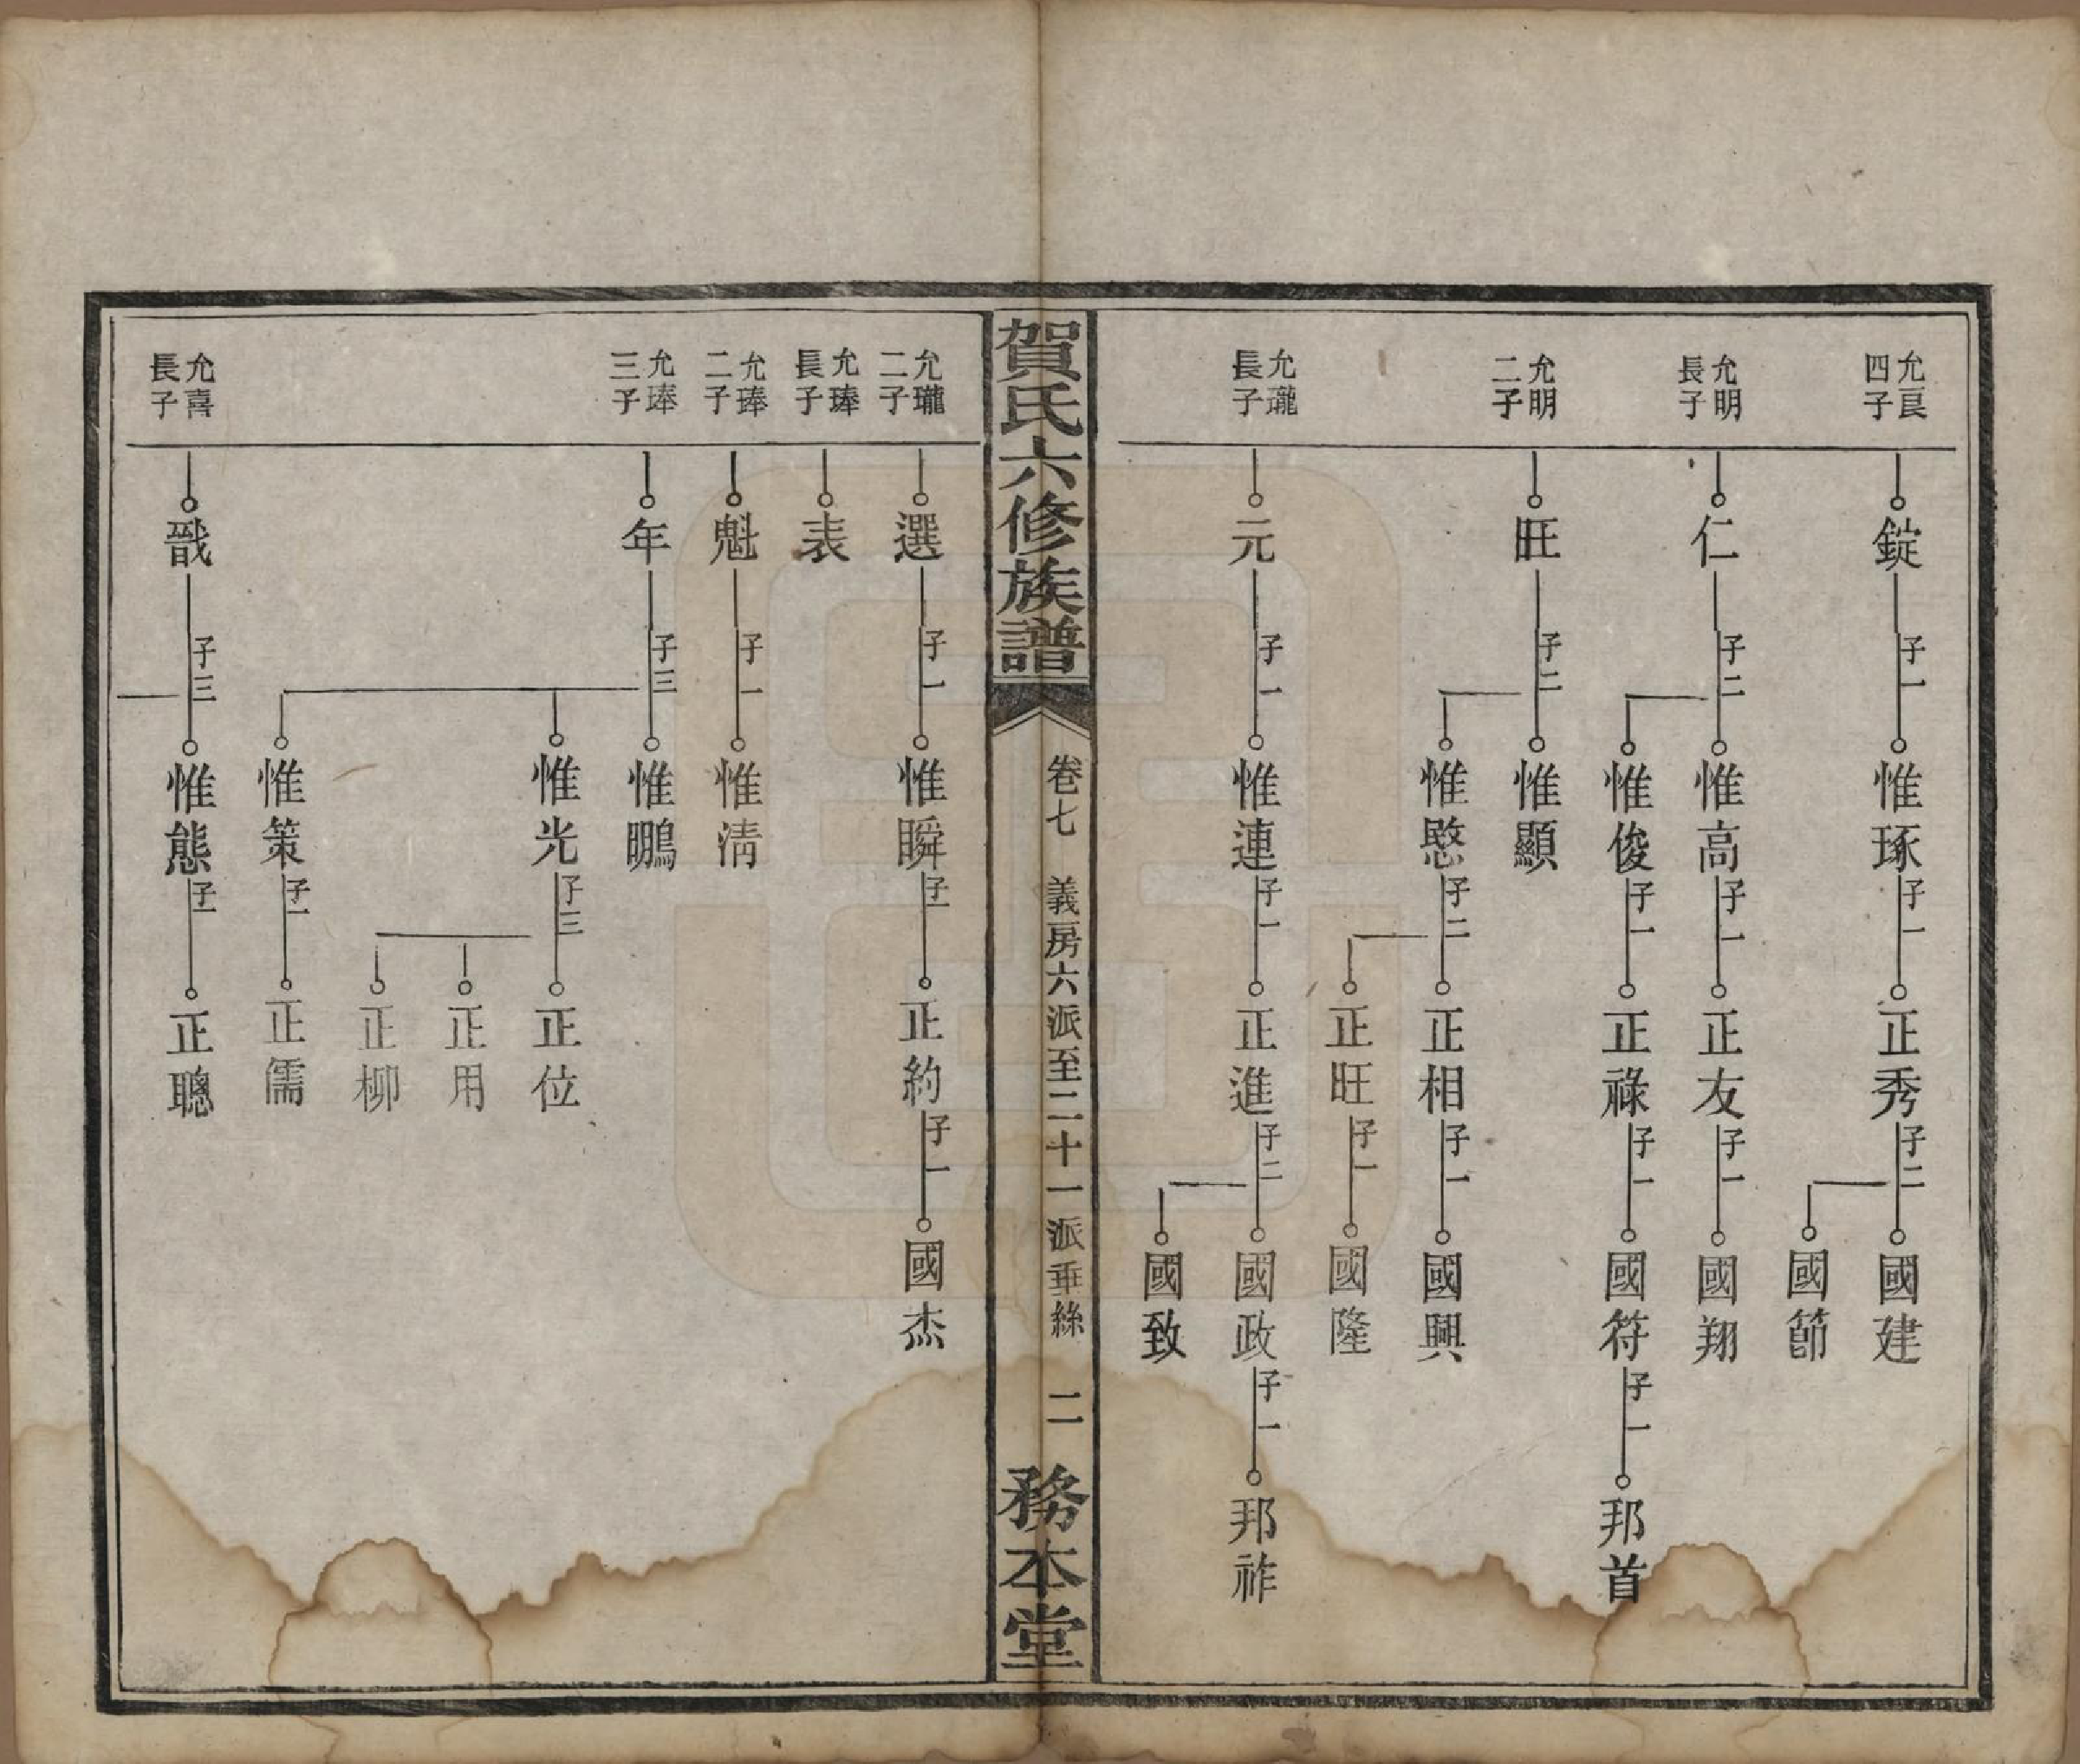 允良四子
錠 子一
惟琢 子一
正秀 子二
國建
國節
允明長子
仁 子二
惟高 子一
正友 子一
國翔
惟俊 子一
正祿 子一
國符 子一
邦首
允明二子
旺 子二
惟顯
惟愍 子二
正相 子一
國興
正旺 子一
國隆
允瓏長子
元 子一
惟連 子一
正進 子二
國政 子一
邦祚
國致
賀氏六修族譜
卷七 義房六派至二十一派垂絲 二
務本堂
允瓏二子
選 子一
惟瞬 子一
正約 子一
國杰
允琫長子
表
允琫二子
魁 子一
惟清
允琫三子
年 子三
惟鵬
惟光 子三
正位
正用
正柳
惟策 子一
正儒
允喜長子
戩 子三
惟態 子一
正聰